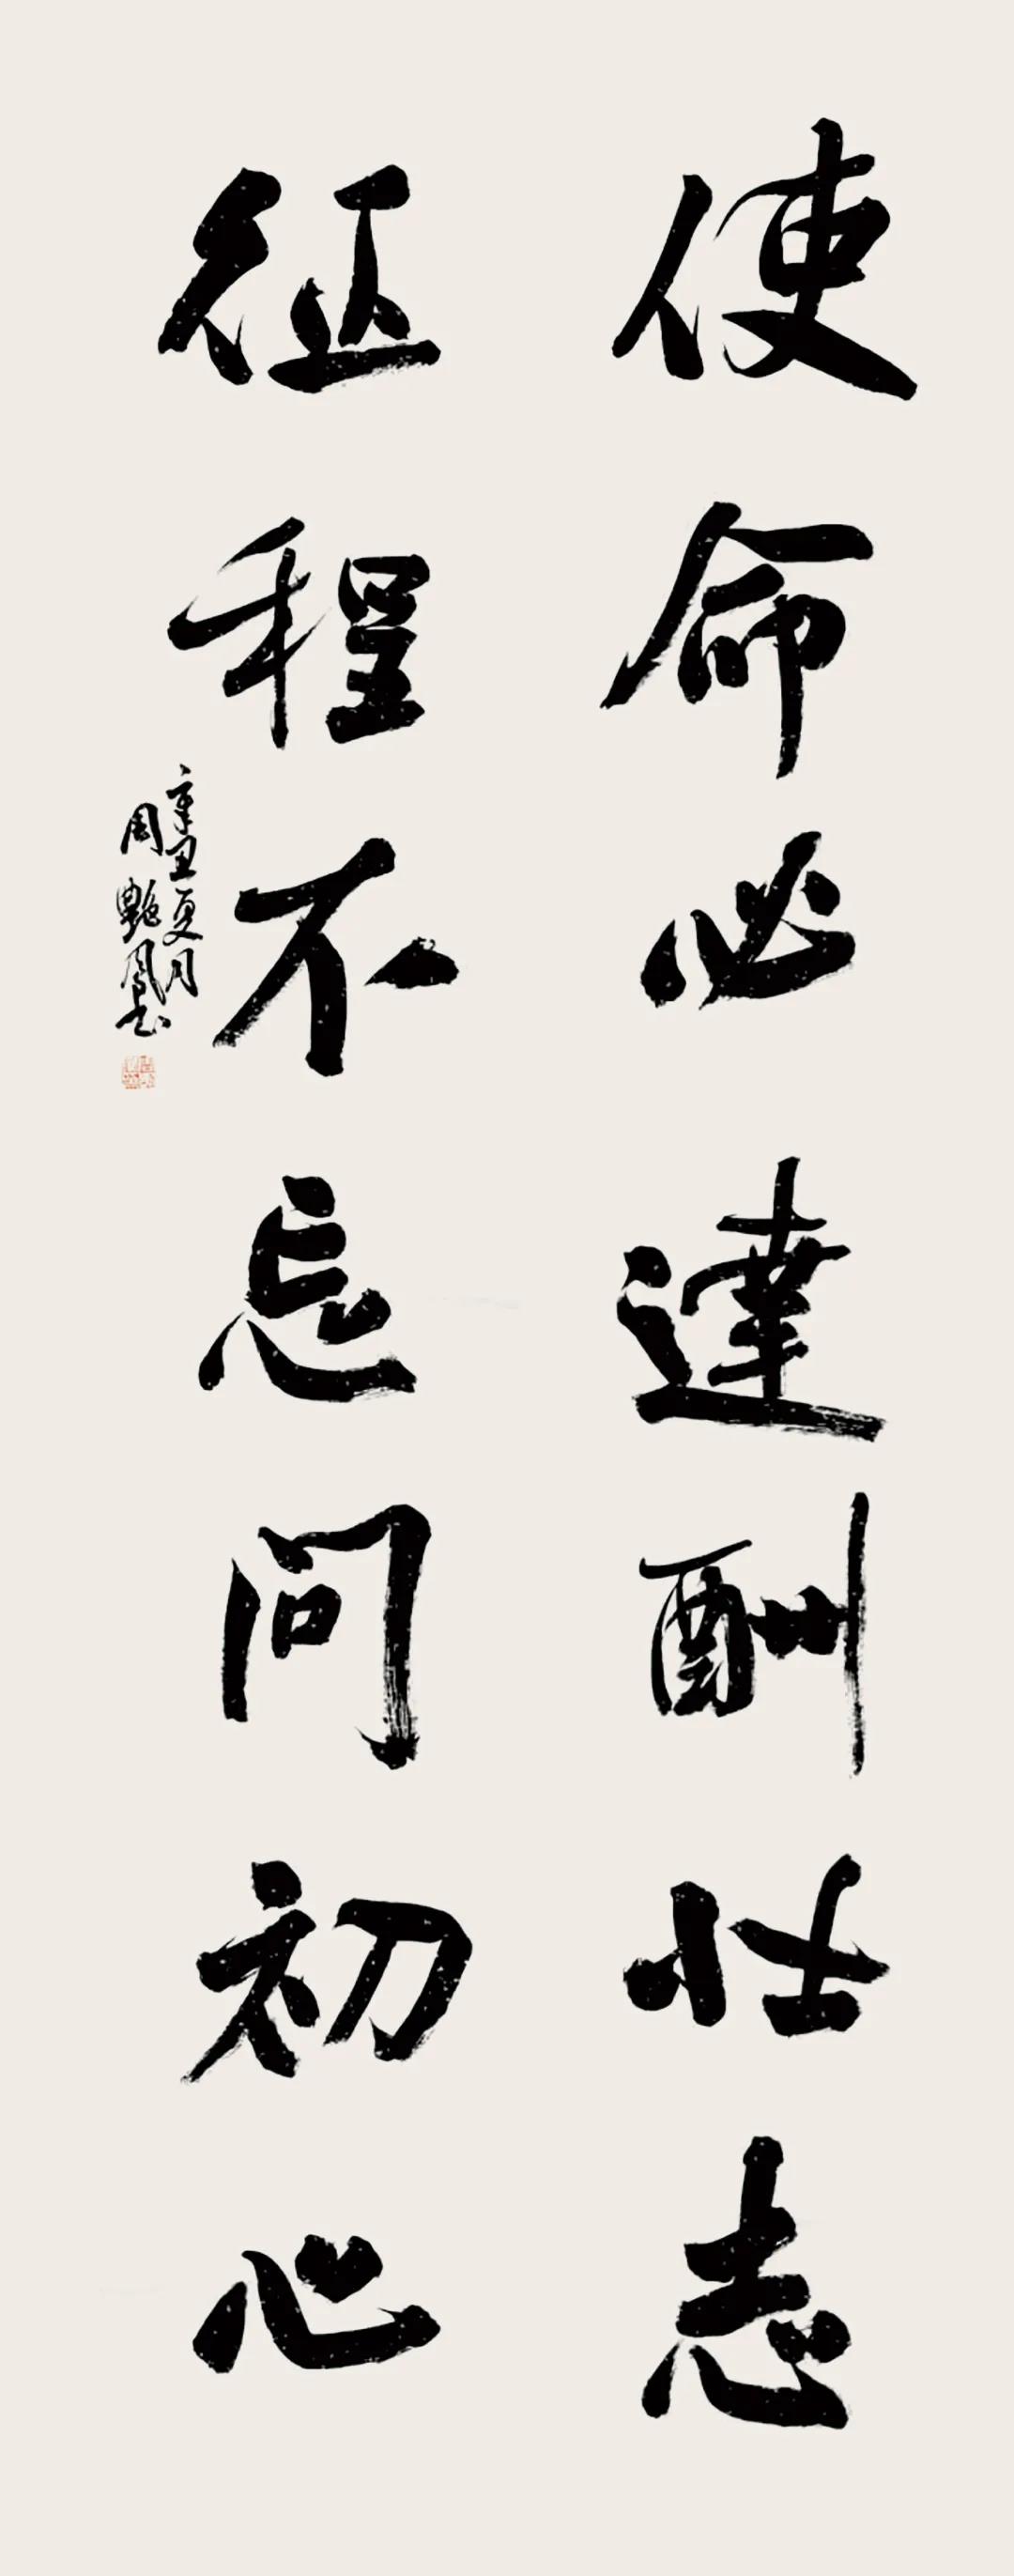 使命必達酬壮志
征程不忘问初心
辛丑夏月
周艶凤书